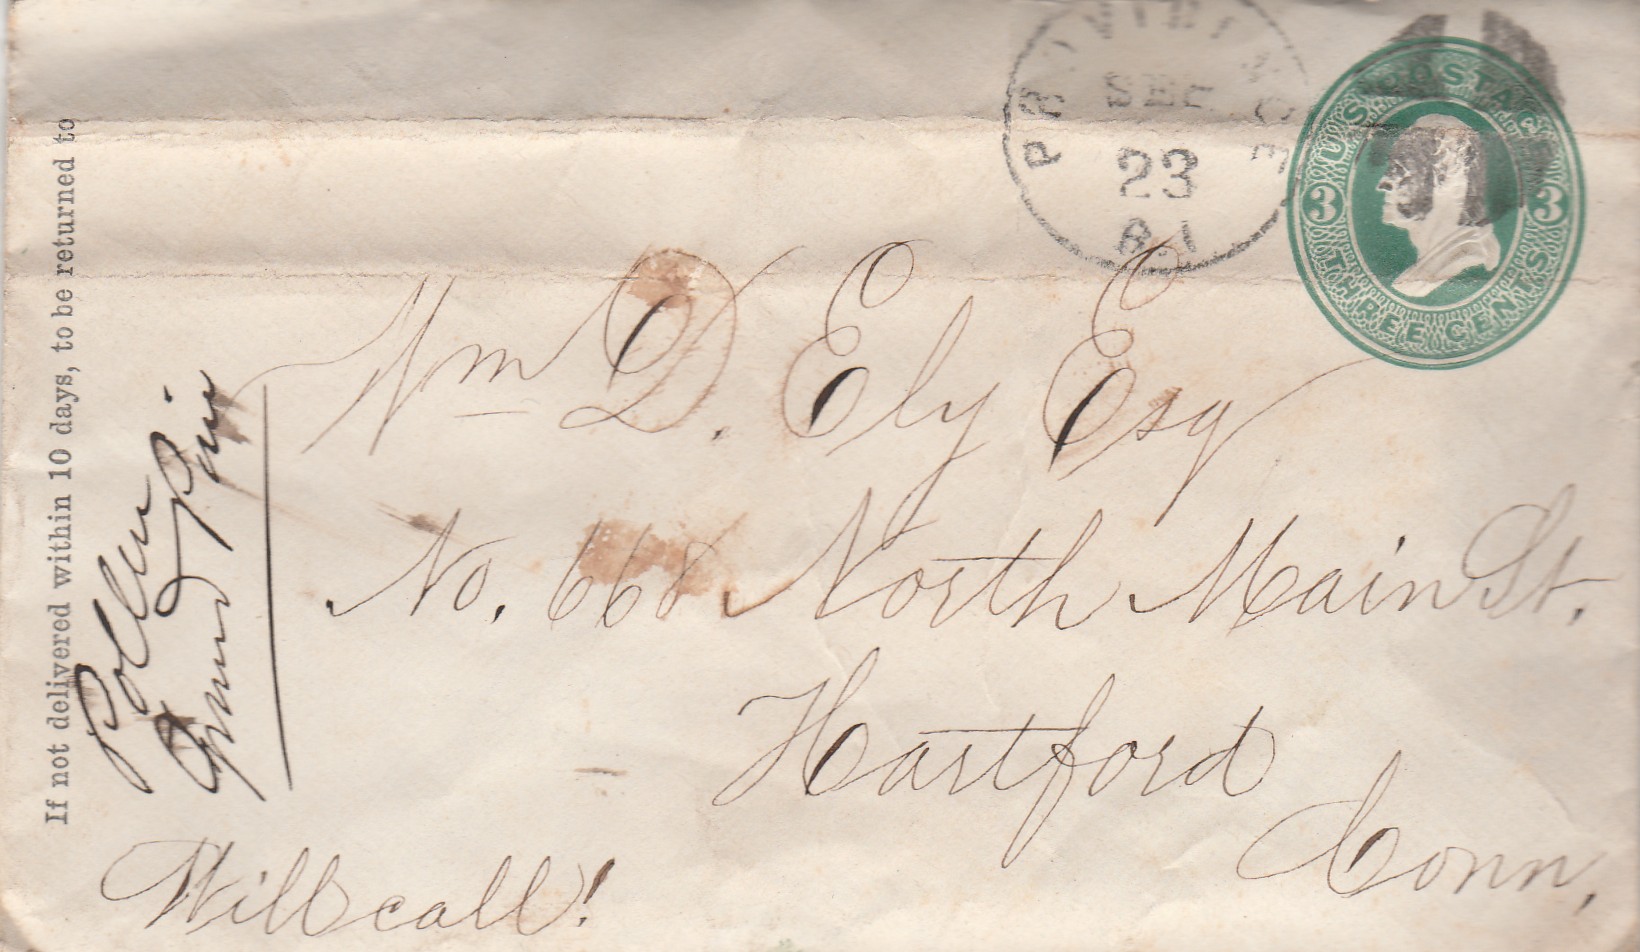 If not delivered within 10 days, to be returned to
PROVIDENCE
SEP
23
R.I
U.S. POSTAGE
3 3
THREE CENTS
Wm D. Ely Esq
No. 668 North Main St.
Hartford
Conn.
Will call!